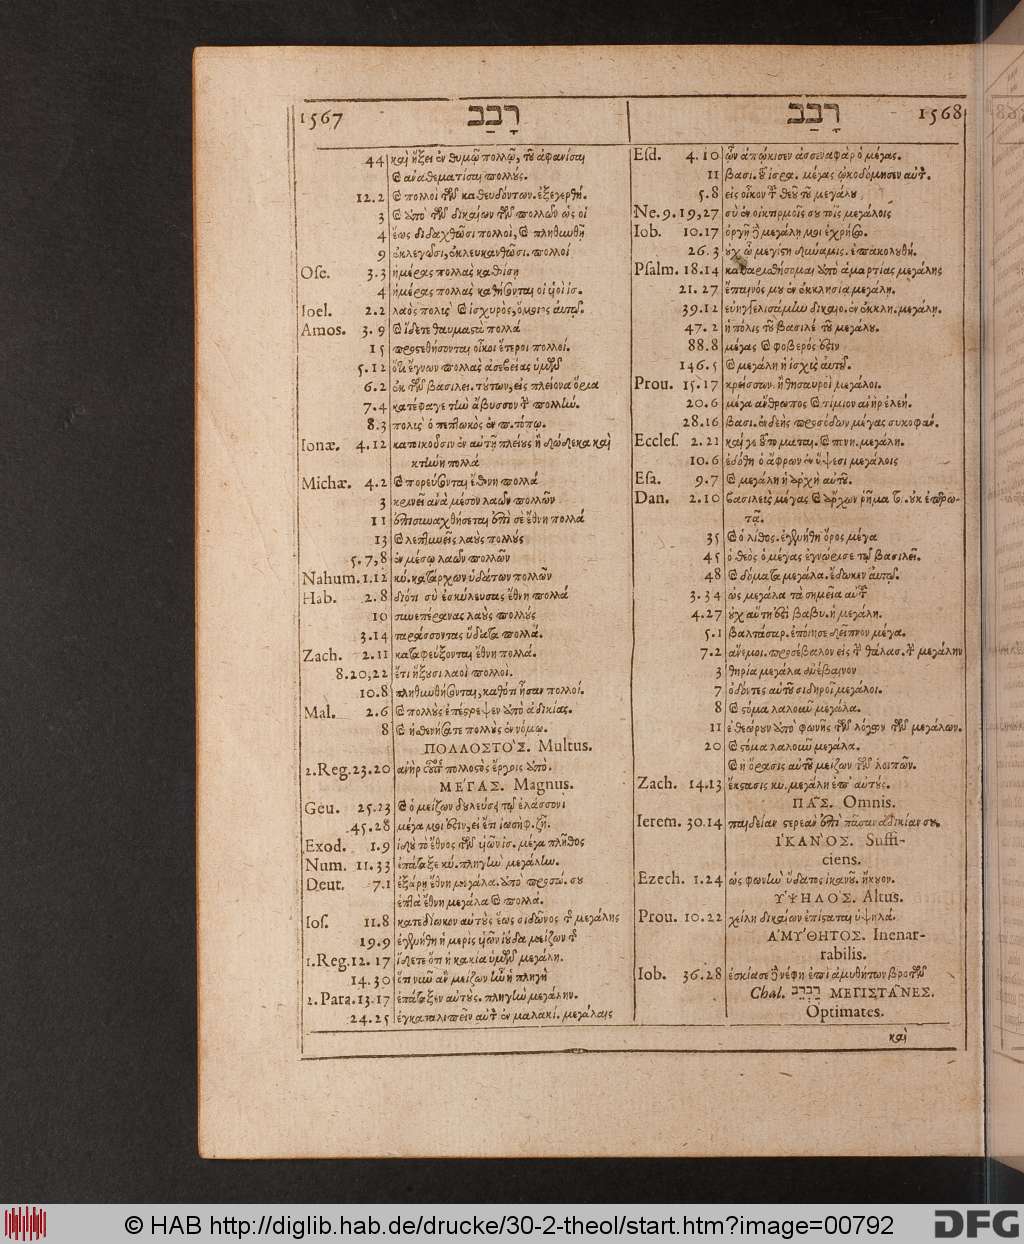 1567 רָבַב
44 καὶ ἥξει ἐν θυμῷ πολλῷ, τοῦ ἀφανίσαι
καὶ ἀναθεματίσαι πολλούς.
12.2 καὶ πολλοὶ τῶν καθευδόντων. ἐξεγερθή.
3 καὶ ἀπὸ τῶν δικαίων τῶν πολλῶν ὡς οἱ
4 ἕως διδαχθῶσι πολλοί, καὶ πληθυνθῇ
9 ἐκλεγῶσι, ἐκλευκανθῶσι. πολλοί
Ose. 3.3 ἡμέρας πολλὰς καθίσῃ
4 ἡμέρας πολλὰς καθήσονται οἱ υἱοὶ ἰσ.
Ioel. 2.2 λαὸς πολὺς καὶ ἰσχυρὸς, ὅμοιος αὐτῷ.
Amos. 3.9 καὶ ἴδετε θαυμαστὰ πολλά
15 προστεθήσονται οἶκοι ἕτεροι πολλοί.
5.12 ὅτι ἔγνων πολλὰς ἀσεβείας ὑμῶν
6.2 ἐκ τῶν βασιλει. τούτων, εἰς πλείονα ὅρια
7.4 κατέφαγε τὴν ἄβυσσον τὴν πολλήν.
8.3 πολὺς ὁ πεπτωκὸς ἐν π. τόπῳ.
Ionæ. 4.12 κατοικοῦσιν ἐν αὐτῇ πλείους ἢ δώδεκα καὶ
κτήνη πολλά
Michæ. 4.2 καὶ πορεύσονται ἔθνη πολλά
3 κρινεῖ ἀνὰ μέσον λαῶν πολλῶν
11 ἐπισυναχθήσεται ἐπὶ σὲ ἔθνη πολλά
13 καὶ λεπτυνεῖς λαοὺς πολλούς
5.7,8 ἐν μέσω λαῶν πολλῶν
Nahum. 1.12 κύ. κατάρχων ὑδάτων πολλῶν
Hab. 2.8 διότι σὺ ἐσκύλευσας ἔθνη πολλά
10 συνεπέρανας λαοὺς πολλούς
3.14 ταράσσοντας ὕδατα πολλά.
Zach. 2.11 καταφεύξονται ἔθνη πολλά.
8.20,22 ἔτι ἥξουσι λαοὶ πολλοί.
10.8 πληθυνθήσονται, καθότι ἦσαν πολλοί.
Mal. 2.6 καὶ πολλοὺς ἐπέστρεψεν ἀπὸ ἀδικίας.
8 καὶ ἠσθενήσατε πολλοὺς ἐν νόμω.
ΠΟΛΛΟΣΤΟ'Σ. Multus.
2.Reg. 23.20 ἀνὴρ πολλοστὸς ἔργοις ἀπὸ.
ΜΕ'ΓΑΣ. Magnus.
Geu. 25.23 καὶ ὁ μείζων δουλεύσει τῷ ἐλάσσονι
45.28 μέγα μοι ἐστιν, εἰ ἔτι ἰωσὴφ. ζῇ.
Exod. 1.9 ἰδοὺ τὸ ἔθνος τῶν υἱῶν ἰσ. μέγα πλῆθος
Num. 11.33 ἐπάταξε κύ. πληγὴν μεγάλην.
Deut. 7.1 ἐξάρῃ ἔθνη μεγάλα. ἀπὸ προσώ. σου
ἑπτὰ ἔθνη μεγάλα καὶ πολλά.
Ios. 11.8 κατεδίωκον αὐτοὺς ἕως σιδῶνος τῆς μεγάλης
19.9 ἐγενήθη ἡ μερὶς υἱῶν ἰούδα μείζων τῆς
1.Reg. 12.17 ἴδετε ὅτι ἡ κακία ὑμῶν μεγάλη.
14.30 ὅτι νῦν ἂν μείζων ἦν ἡ πληγὴ
2.Para. 13.17 ἐπάταξεν αὐτοὺς. πληγὴν μεγάλην.
24.25 ἐγκαταλιπεῖν αὐτὸν ἐν μαλακί. μεγάλαις
רָבַב 1568
Esd. 4.10 ὧν ἀπῴκισεν ἀσσεναφὰρ ὁ μέγας.
11 βασι. τοῦ ἰσρα. μέγας ᾠκοδόμησεν αὐτὸν.
5.8 εἰς οἶκον τοῦ θεοῦ τοῦ μεγάλου
Ne. 9.19,27 σὺ ἐν οἰκτιρμοῖς σου τοῖς μεγάλοις
Iob. 10.17 ὀργῇ δὲ μεγάλη μοι ἐχρήσω.
26.3 οὐχ ᾧ μεγίστη δύναμις. ἐπακολουθή.
Psalm. 18.14 καθαρισθήσομαι ἀπὸ ἁμαρτίας μεγάλης
21.27 ἔπαινός μου ἐν ἐκκλησία μεγάλη.
39.12 εὐηγγελισάμην δικαιο. ἐν ἐκκλη. μεγάλη.
47.2 ἡ πόλις τοῦ βασιλέ τοῦ μεγάλου.
88.8 μέγας καὶ φοβερός ἐστιν
146.5 καὶ μεγάλη ἡ ἰσχὺς αὐτοῦ.
Prou. 15.17 κρείσσων. ἢ θησαυροὶ μεγάλοι.
20.6 μέγα ἄνθρωπος καὶ τίμιον ἀνὴρ ἐλεή.
28.16 βασι. ἐνδεὴς προσόδων μέγας συκοφάν.
Eccles. 2.21 καί γε τοῦτο μαται. καὶ πονη. μεγάλη.
10.6 ἐδόθη ὁ ἄφρων ἐν ὕψεσι μεγάλοις
Esa. 9.7 καὶ μεγάλη ἡ ἀρχὴ αὐτοῦ.
Dan. 2.10 βασιλεὺς μέγας καὶ ἄρχων ῥῆμα τ. οὐκ ἐπερω-
τᾷ.
35 καὶ ὁ λίθος. ἐγενήθη ὄρος μέγα
45 ὁ θεὸς ὁ μέγας ἐγνώρισε τῷ βασιλεῖ.
48 καὶ δόματα μεγάλα. ἔδωκεν αὐτῷ.
3.34 ὡς μεγάλα τὰ σημεῖα αὐτοῦ
4.27 οὐχ αὕτη ἐστὶ βαβυ. ἡ μεγάλη.
5.1 βαλτάσαρ. ἐποίησε δεῖπνον μέγα.
7.2 ἄνεμοι. προσέβαλον εἰς τὴν θάλασ. τὴν μεγάλην
3 θηρία μεγάλα ἀνέβαινον
7 ὀδόντες αὐτοῦ σιδηροῖ μεγάλοι.
8 καὶ στόμα λαλοῦν μεγάλα.
11 ἐθεώρουν ἀπὸ φωνῆς τῶν λόγων τῶν μεγάλων.
20 καὶ στόμα λαλοῦν μεγάλα.
καὶ ἡ ὅρασις αὐτοῦ μείζων τῶν λοιπῶν.
Zach. 14.13 ἔκστασις κυ. μεγάλη ἐπ' αὐτούς.
ΠΑ͂Σ. Omnis.
Ierem. 30.14 παιδείαν στερεὰν ἐπὶ πᾶσαν ἀδικίαν σου.
Ι'ΚΑΝΟ'Σ. Suffi-
ciens.
Ezech. 1.24 ὡς φωνὴν ὕδατος ἱκανοῦ. ἤκουον.
Υ'ΨΗΛΟ'Σ. Altus.
Prou. 10.22 χείλη δικαίων ἐπίσταται ὑψηλά.
Α'ΜΥ'ΘΗΤΟΣ. Inenar-
rabilis.
Iob. 36.28 ἐσκίασε δὲ νέφη ἐπὶ ἀμυθήτων βροτῶν
Chal. רַבְרְבֵי ΜΕΓΙΣΤΑ͂ΝΕΣ.
Optimates.
καὶ
© HAB http://diglib.hab.de/drucke/30-2-theol/start.htm?image=00792
DFG